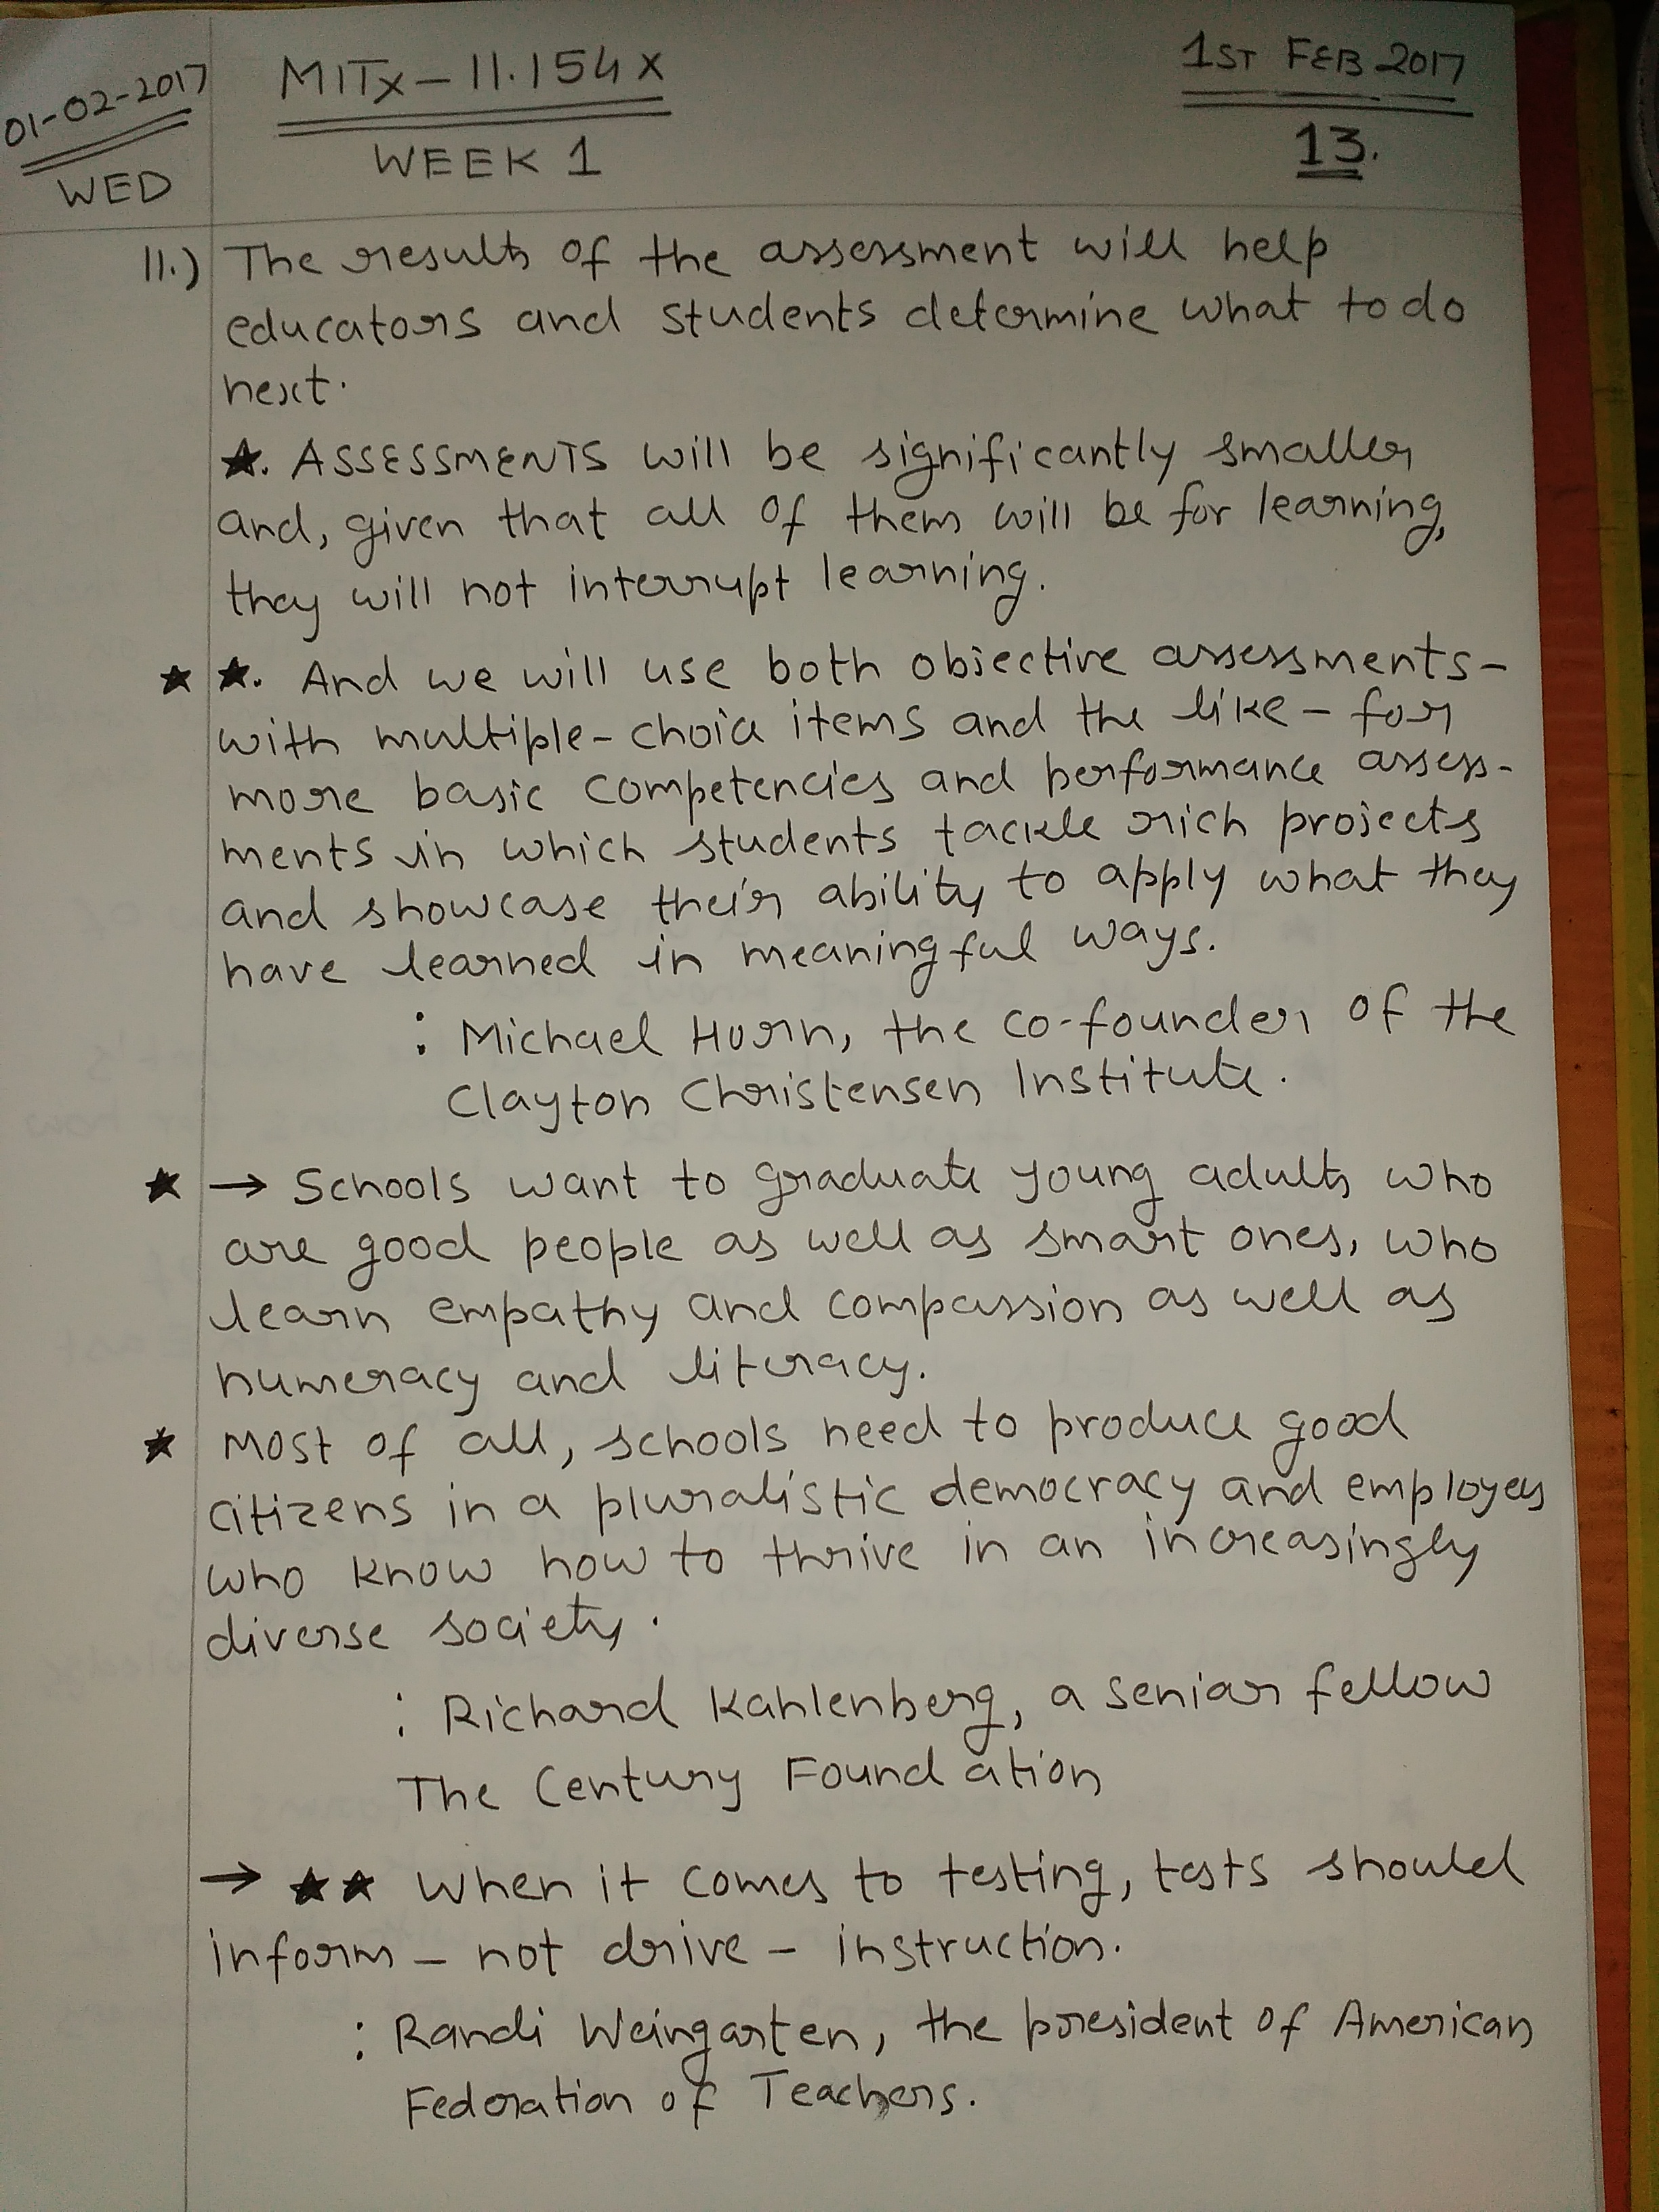 01-02-2017
WED
MITx-11.154x
WEEK 1
1ST FEB 2017
13.
11.) The results of the assessment will help
educators and students determine what to do
next.
★. ASSESSMENTS will be significantly smaller
and, given that all of them will be for learning,
they will not interrupt learning.
★ ★. And we will use both objective assessments-
with multiple-choice items and the like - for
more basic competencies and performance assess-
ments in which students tackle rich projects
and showcase their ability to apply what they
have learned in meaningful ways.
: Michael Horn, the co-founder of the
Clayton Christensen Institute.
★ → Schools want to graduate young adults who
are good people as well as smart ones, who
learn empathy and compassion as well as
numeracy and literacy.
★ Most of all, schools need to produce good
citizens in a pluralistic democracy and employees
who know how to thrive in an increasingly
diverse society.
: Richard Kahlenberg, a senior fellow
The Century Foundation
→ ★★ When it comes to testing, tests should
inform - not drive - instruction.
: Randi Weingarten, the president of American
Federation of Teachers.